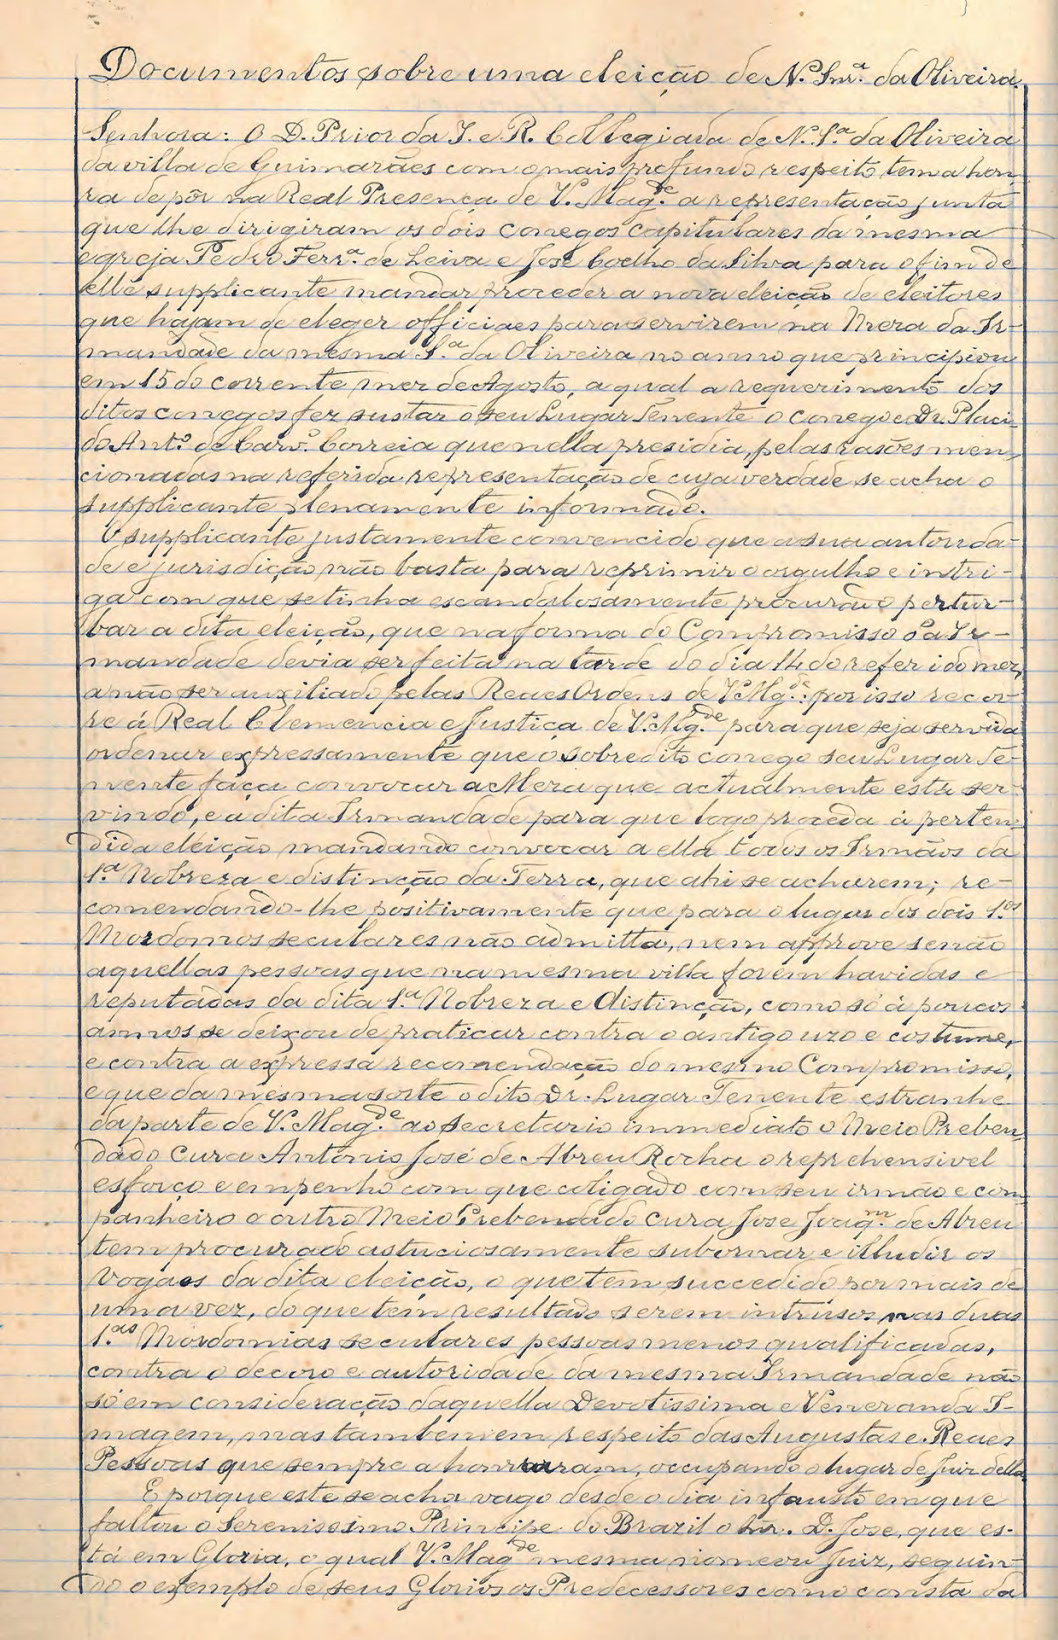 Documentos sobre uma eleição de N.ª Snr.ª da Oliveira.
Senhora: O D. Prior da I. e R. Collegiada de N. S.ª da Oliveira
da villa de Guimarães com o mais profundo respeito tem a hon-
ra de pôr na Real Presença de V. Mag.de a representação junta
que lhe dirigiram os dois conegos capitulares da mesma
egreja Pedro Ferr.ª de Leiva e José Coelho da Silva para o fim de
elle supplicante mandar proceder a nova eleição de eleitores
que hajam de eleger officiaes para servirem na Meza da Ir-
mandade da mesma S.ª da Oliveira no anno que principiou
em 15 do corrente mez de Agosto, a qual a requerimento dos
ditos conegos fez sustar o seu Lugar Tenente o conego Dr. Placi-
do Ant.º de Carv.º Correia que nella presidia, pelas rasões men-
cionadas na referida representação de cuja verdade se acha o
supplicante plenamente informado.
O supplicante justamente convencido que a sua autorida-
de e jurisdição não basta para reprimir o orgulho e intri-
ga com que se tinha escandalosamente procurado pertur-
bar a dita eleição, que na forma do Compromisso da Ir-
mandade devia ser feita na tarde do dia 14 do referido mez,
a não ser auxiliado pelas Reaes Ordens de V. Mg.de: por isso recor-
re á Real Clemencia e Justiça de V. Mg.de para que seja servida
ordenar expressamente que o sobredito conego seu Lugar Te-
nente faça convocar a Meza que actualmente está ser-
vindo, e a dita Irmandade para que logo proceda á perten-
dida eleição mandando convocar a ella todos os Irmãos da
1.ª Nobreza e distincção da Terra, que ahi se acharem; re-
comendando-lhe positivamente que para o lugar dos dois 1.os
Mordomos seculares não admitta, nem approve senão
aquellas pessoas que na mesma villa forem havidas e
reputadas da dita 1.ª Nobreza e distinção, como só á poucos
annos se deixou de praticar contra o antigo uzo e costume,
e contra a expressa recomendação do mesmo Compromisso,
e que da mesma sorte o dito Dr. Lugar Tenente estranhe
da parte de V. Mag.de ao secretario immediato o Meio Preben-
dado Cura Antonio José de Abreu Rocha o reprehensivel
esforço e empenho com que coligado com seu irmão e com-
panheiro o outro Meio Prebendado Cura José Joaq.m de Abreu
tem procurado astuciosamente subornar e illudir os
Vogaes da dita eleição, o que tem succedido por mais de
uma vez, do que tem resultado serem intrusos nas duas
1.as Mordomias seculares pessoas menos qualificadas,
contra o decoro e autoridade da mesma Irmandade não
só em consideração daquella Devotissima e Veneranda I-
magem, mas tambem em respeito das Augustas e Reaes
Pessoas que sempre a honraram, occupando o lugar de Juiz della
E porque este se acha vago desde o dia infausto em que
faltou o Serenissimo Principe do Brazil o Snr. D. José, que es-
tá em Gloria, o qual V. Mag.de mesma nomeou Juiz, seguin-
do o exemplo de seus Gloriosos Predecessores como consta da